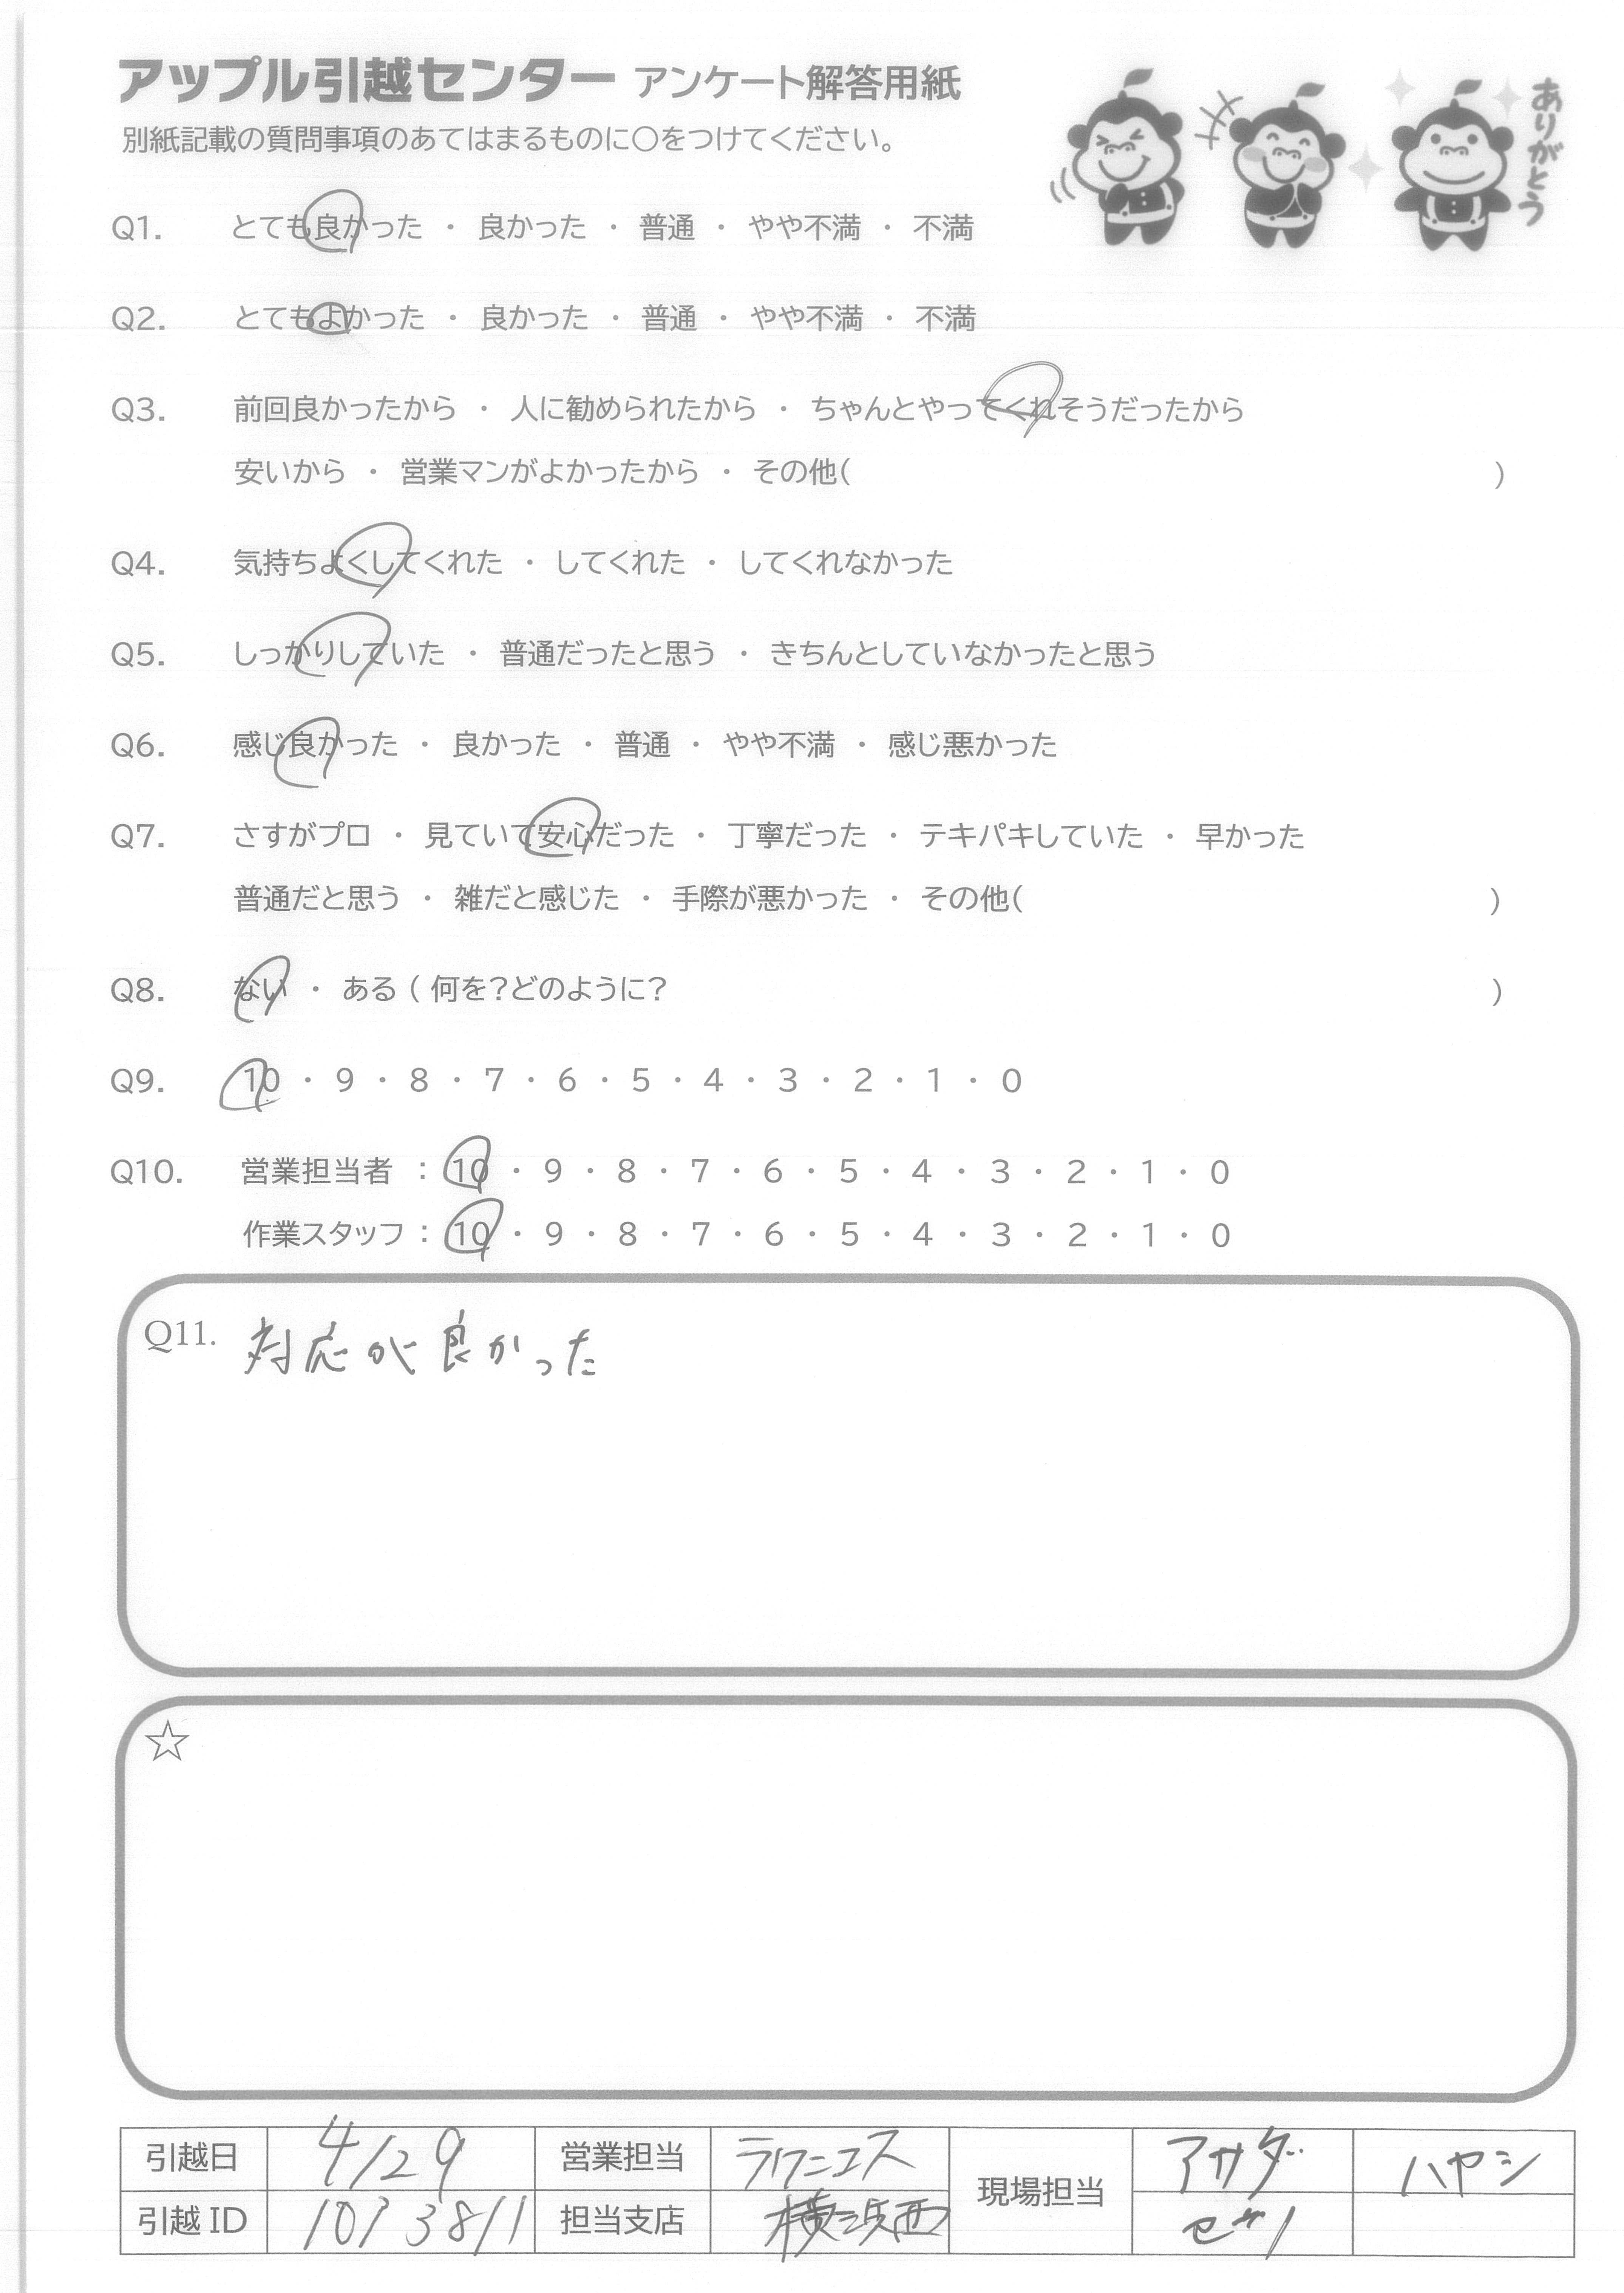 アップル引越センター アンケート解答用紙
別紙記載の質問事項のあてはまるものに〇をつけてください。
ありがとう
Q1. とても良かった ・ 良かった ・ 普通 ・ やや不満 ・ 不満
Q2. とてもよかった ・ 良かった ・ 普通 ・ やや不満 ・ 不満
Q3. 前回良かったから ・ 人に勧められたから ・ ちゃんとやってくれそうだったから
安いから ・ 営業マンがよかったから ・ その他( )
Q4. 気持ちよくしてくれた ・ してくれた ・ してくれなかった
Q5. しっかりしていた ・ 普通だったと思う ・ きちんとしていなかったと思う
Q6. 感じ良かった ・ 良かった ・ 普通 ・ やや不満 ・ 感じ悪かった
Q7. さすがプロ ・ 見ていて安心だった ・ 丁寧だった ・ テキパキしていた ・ 早かった
普通だと思う ・ 雑だと感じた ・ 手際が悪かった ・ その他( )
Q8. ない ・ ある ( 何を?どのように? )
Q9. 10 ・ 9 ・ 8 ・ 7 ・ 6 ・ 5 ・ 4 ・ 3 ・ 2 ・ 1 ・ 0
Q10. 営業担当者 : 10 ・ 9 ・ 8 ・ 7 ・ 6 ・ 5 ・ 4 ・ 3 ・ 2 ・ 1 ・ 0
作業スタッフ : 10 ・ 9 ・ 8 ・ 7 ・ 6 ・ 5 ・ 4 ・ 3 ・ 2 ・ 1 ・ 0
Q11. 対応が良かった
☆
引越日 4/29 営業担当 現場担当 アサダ ハヤシ
引越ID 1013811 担当支店 横浜西